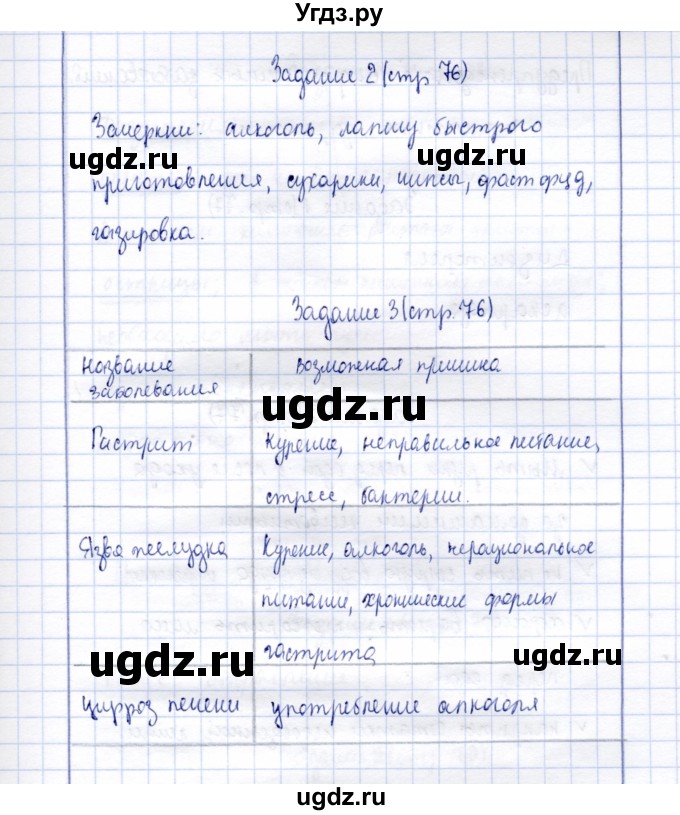 Угдз.ру
Задание 2 (стр 76)
Зачеркни: алкоголь, лапшу быстрого
ugdz.ru ugdz.ru
приготовления, сухарики, чипсы, фаст фуд,
газировка.
Задание 3 (стр. 76)
Название Возможная причина
заболевания
ugdz.ru
Гастрит Курение, неправильное питание,
стресс, бактерии.
Язва желудка Курение, алкоголь, нерациональное
питание, хронические формы
гастрита
ugdz.ru ugdz.ru
Цирроз печени употребление алкоголя
ugdz.ru